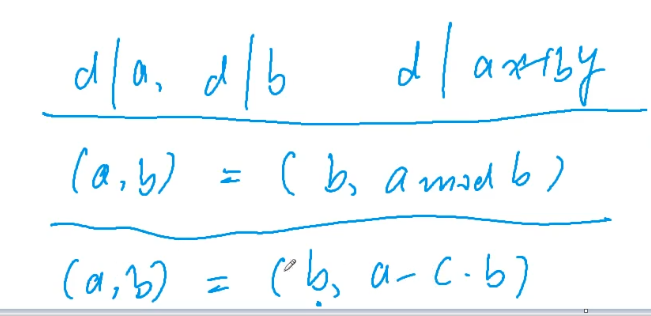 d|a, d|b d|ax+by
(a,b) = (b, a mod b)
(a,b) = (b, a-c·b)